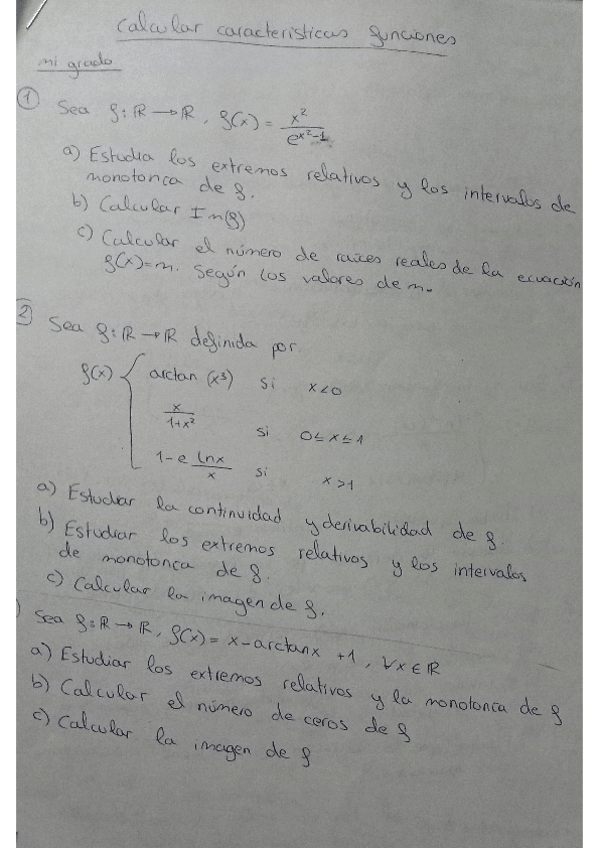 Calcular características funciones
mi grado
① Sea f: ℝ → ℝ, f(x) = x² / e^(x²-1)
a) Estudia los extremos relativos y los intervalos de
monotonca de f.
b) Calcular Im(f)
c) Calcular el número de raíces reales de la ecuación
f(x)=m. Según los valores de m.
② Sea f: ℝ → ℝ definida por
f(x) { arctan (x³) si x<0
x / 1+x² si 0≤x≤1
1-e lnx / x si x>1
a) Estudiar la continuidad y derivabilidad de f.
b) Estudiar los extremos relativos y los intervalos
de monotonca de f.
c) Calcular la imagen de f.
) Sea f: ℝ → ℝ, f(x) = x-arctanx +1, ∀x∈ℝ
a) Estudiar los extremos relativos y la monotonca de f
b) Calcular el número de ceros de f
c) Calcular la imagen de f